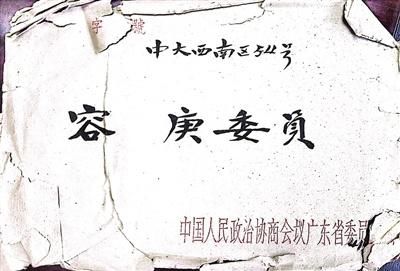 字 號
中大西南区54号
容 庚委員
中国人民政治协商会议广东省委员